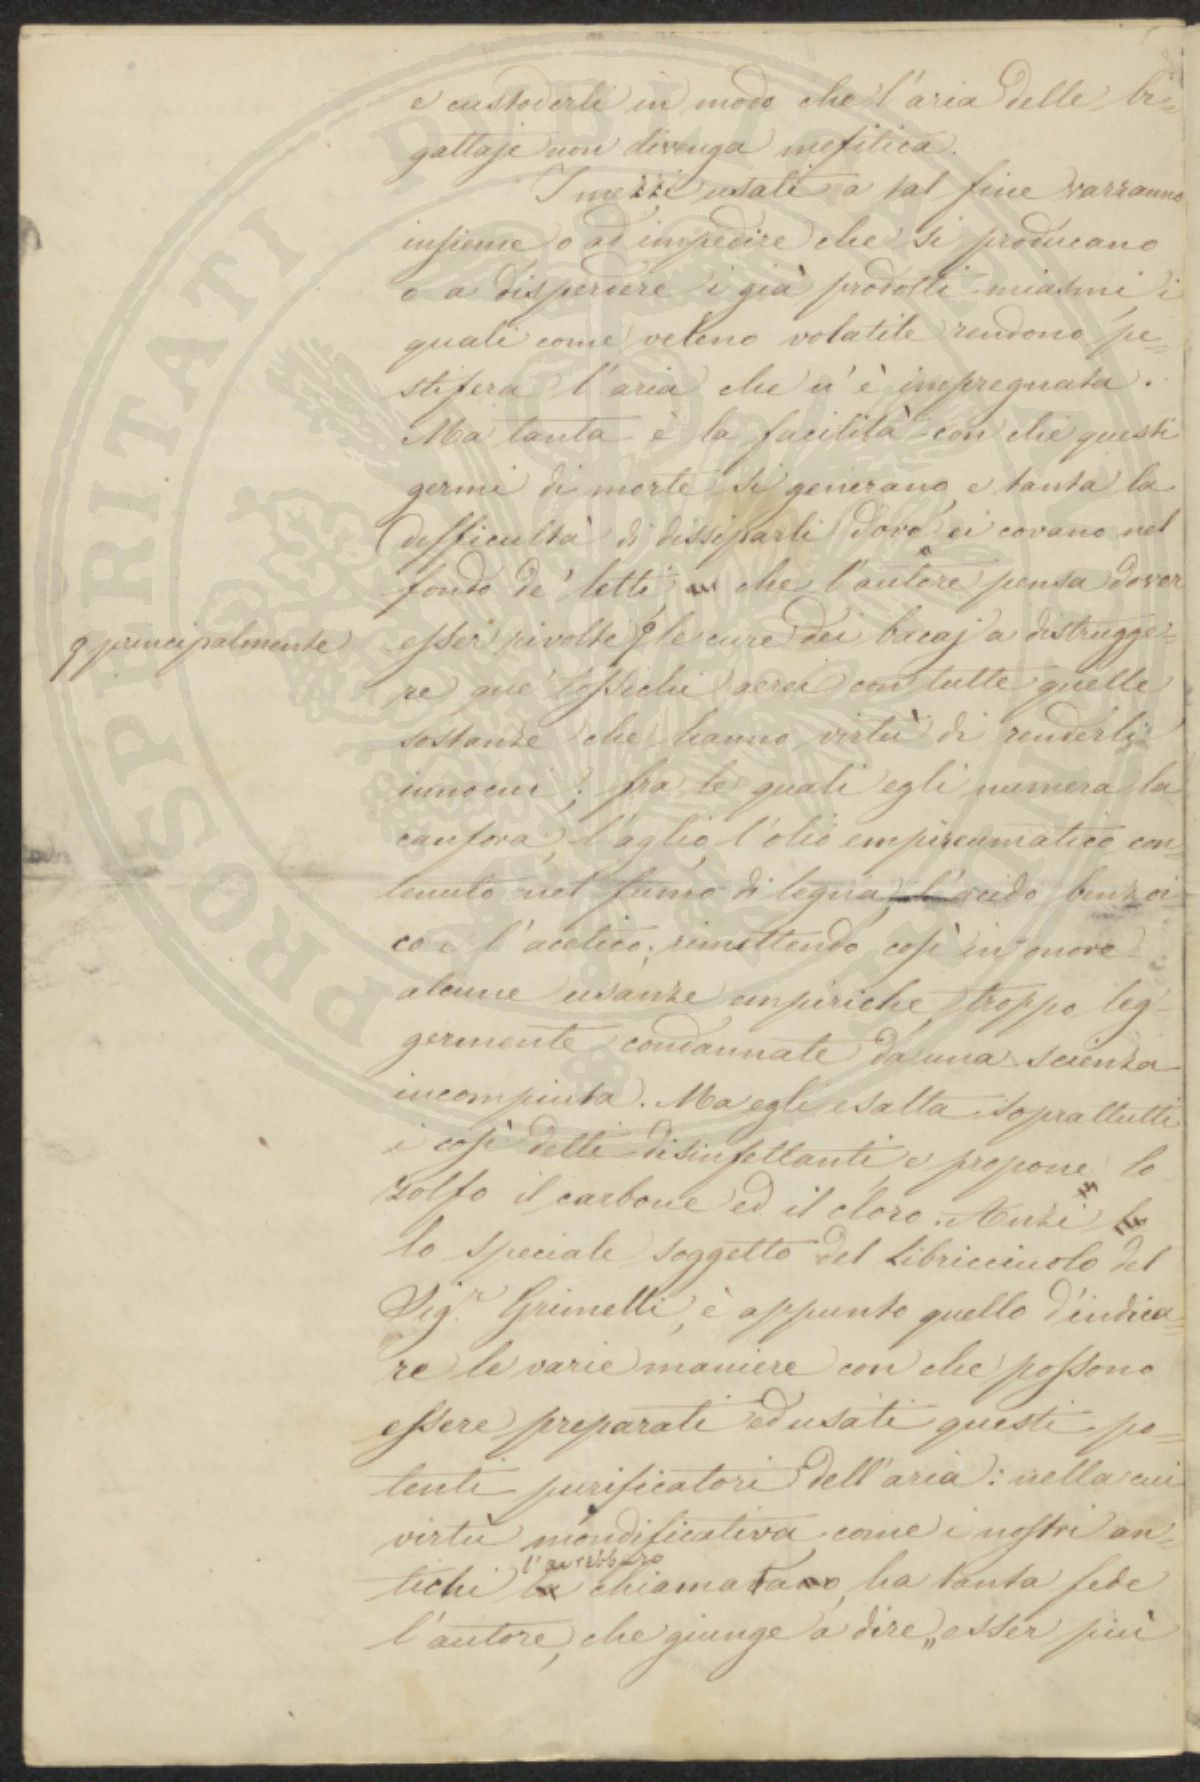 e custoderli in modo che l'aria delle bi=
gattaje non divenga mefitica.
I mezzi usati a tal fine varranno
insieme o ad impedire che si producano
o a disperdere i già prodotti miasmi, i
quali come veleno volatile rendono pe=
stifera l'aria che n'è impregnata.
Ma tanta è la facilità con che questi
germi di morte si generano, e tanta la
difficultà di dissiparli dove ei covano nel
fondo de' letti, che l'autore pensa dover
principalmente
esser rivolte le cure dei bacaj a distrugge=
re que' tossichi aerei con tutte quelle
sostanze che hanno virtù di renderli
innocui; fra le quali egli numera la
canfora, l'aglio, l'olio empireumatico con=
tenuto nel fumo di legna, l'acido benzoi=
co e l'acetico; rimettendo così in onore
alcune usanze empiriche, troppo leg=
germente condannate da una scienza
incompiuta. Ma egli esalta soprattutti
i così detti disinfettanti, e propone lo
zolfo il carbone ed il cloro. Anzi
lo speciale soggetto del Libricciuolo del
Sig.r Grimelli, è appunto quello d'indica=
re le varie maniere con che possono
essere preparati ed usati questi po=
tenti purificatori dell'aria: nella cui
virtù mondificativa come i nostri an=
l'avrebbero
tichi chiamata, ha tanta fede
l'autore, che giunge a dire „esser più